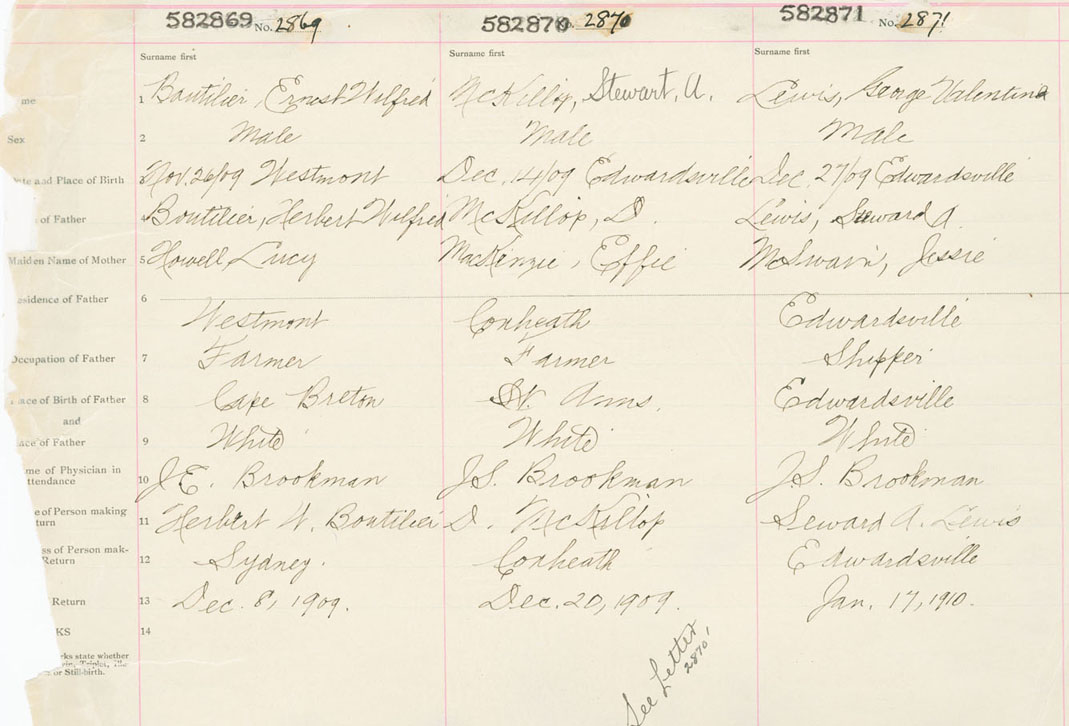 582869 No. 2869 582870 No. 2870 582871 No. 2871
Surname first Surname first Surname first
me 1 Boutilier, Ernest Wilfred McKillop, Stewart, A. Lewis, George Valentine
Sex 2 Male Male Male
ate and Place of Birth 3 Nov. 26/09 Westmont Dec. 14/09 Edwardsville Dec. 27/09 Edwardsville
of Father 4 Boutilier, Herbert Wilfred McKillop, D. Lewis, Steward A.
Maiden Name of Mother 5 Howell, Lucy MacKenzie, Effie McSwain, Jessie
esidence of Father 6
Westmont Coxheath Edwardsville
Occupation of Father 7 Farmer Farmer Shipper
lace of Birth of Father 8 Cape Breton St. Anns. Edwardsville
and
ace of Father 9 White White White
me of Physician in
ttendance 10 J.E. Brookman J.S. Brookman J.S. Brookman
e of Person making
turn 11 Herbert W. Boutilier D. McKillop Seward A. Lewis
ss of Person mak-
Return 12 Sydney. Coxheath Edwardsville
Return 13 Dec. 8, 1909. Dec. 20, 1909. Jan. 17, 1910.
KS 14
rks state whether
win, Triplet, Ille-
or Still-birth.
See Letter
2870